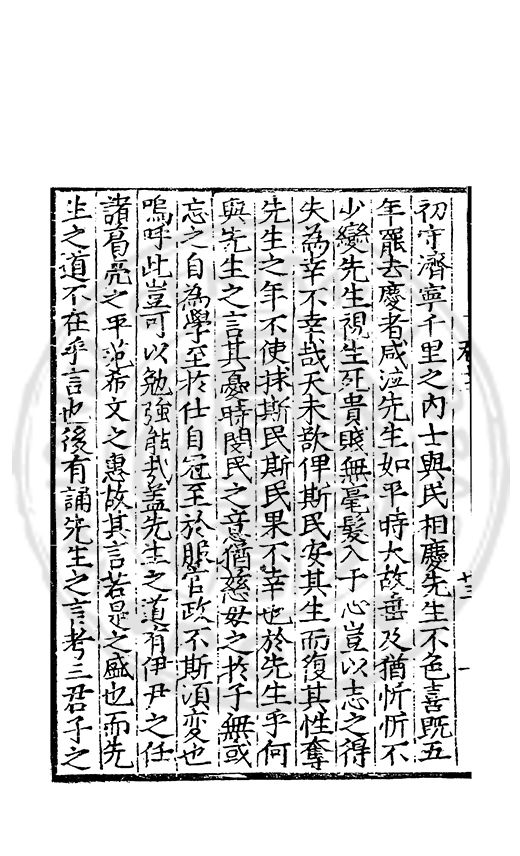 初守濟寧千里之內士與民相慶先生不色喜既五
年罷去慶者咸泣先生如平時大故垂及猶忻忻不
少變先生視生死貴賤無毫髮入于心豈以志之得
失為幸不幸哉天未欲俾斯民安其生而復其性奪
先生之年不使拯斯民斯民果不幸也於先生乎何
與先生之言其憂時閔民之意猶慈母之於子無或
忘之自為學至於仕自冠至於服官政不斯須変也
嗚呼此豈可以勉強能哉盖先生之道有伊尹之任
諸葛亮之平范希文之惠故其言若是之盛也而先
生之道不在乎言也後有誦先生之言考三君子之
廿三